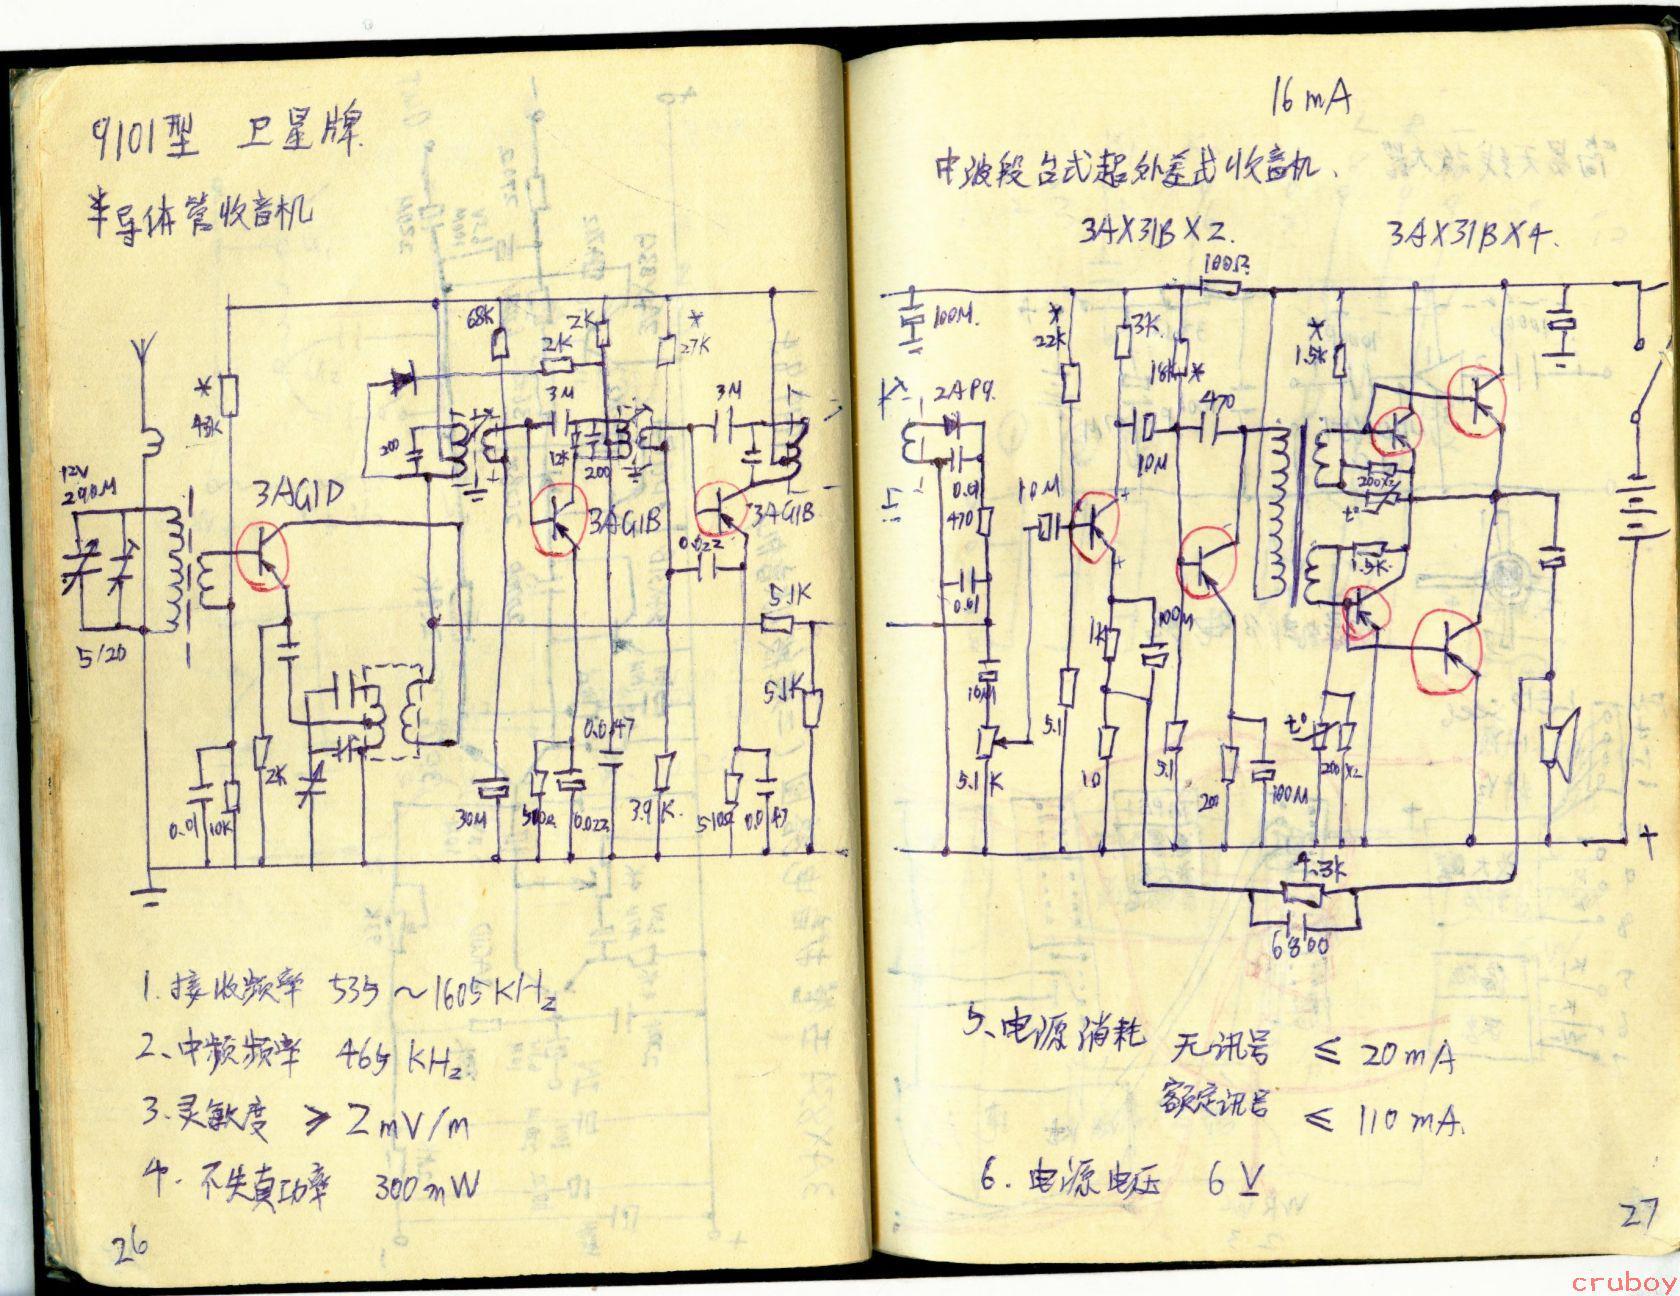 9101型 卫星牌
半导体管收音机
68K
2K
2K
*
27K
*
43K
3M
3M
200
12K
200
12V
290M
3AG1D
3AG1B
3AG1B
0.022
5.1K
5/20
5.1K
0.01
10K
2K
30M
510Ω
0.022
0.047
3.9K
510Ω
0.047
1.接收频率 535~1605KHz
2、中频频率 465KHz
3.灵敏度 ≥2mV/m
4.不失真功率 300mW
26
16mA
中波段台式超外差式收音机.
3AX31B×2.
3AX31B×4.
100Ω
100M.
*
22K
3K
18K*
*
1.5K
2AP9.
470
10M
0.01
470
10M
200×2
t°
0.01
1.5K
1K
100M
10M
5.1
5.1K
10
5.1
200
100M
t°
200×2
+
4.3K
6800
5、电源消耗 无讯号 ≤20mA
额定讯号 ≤110mA.
6.电源电压 6V
27
cruboy